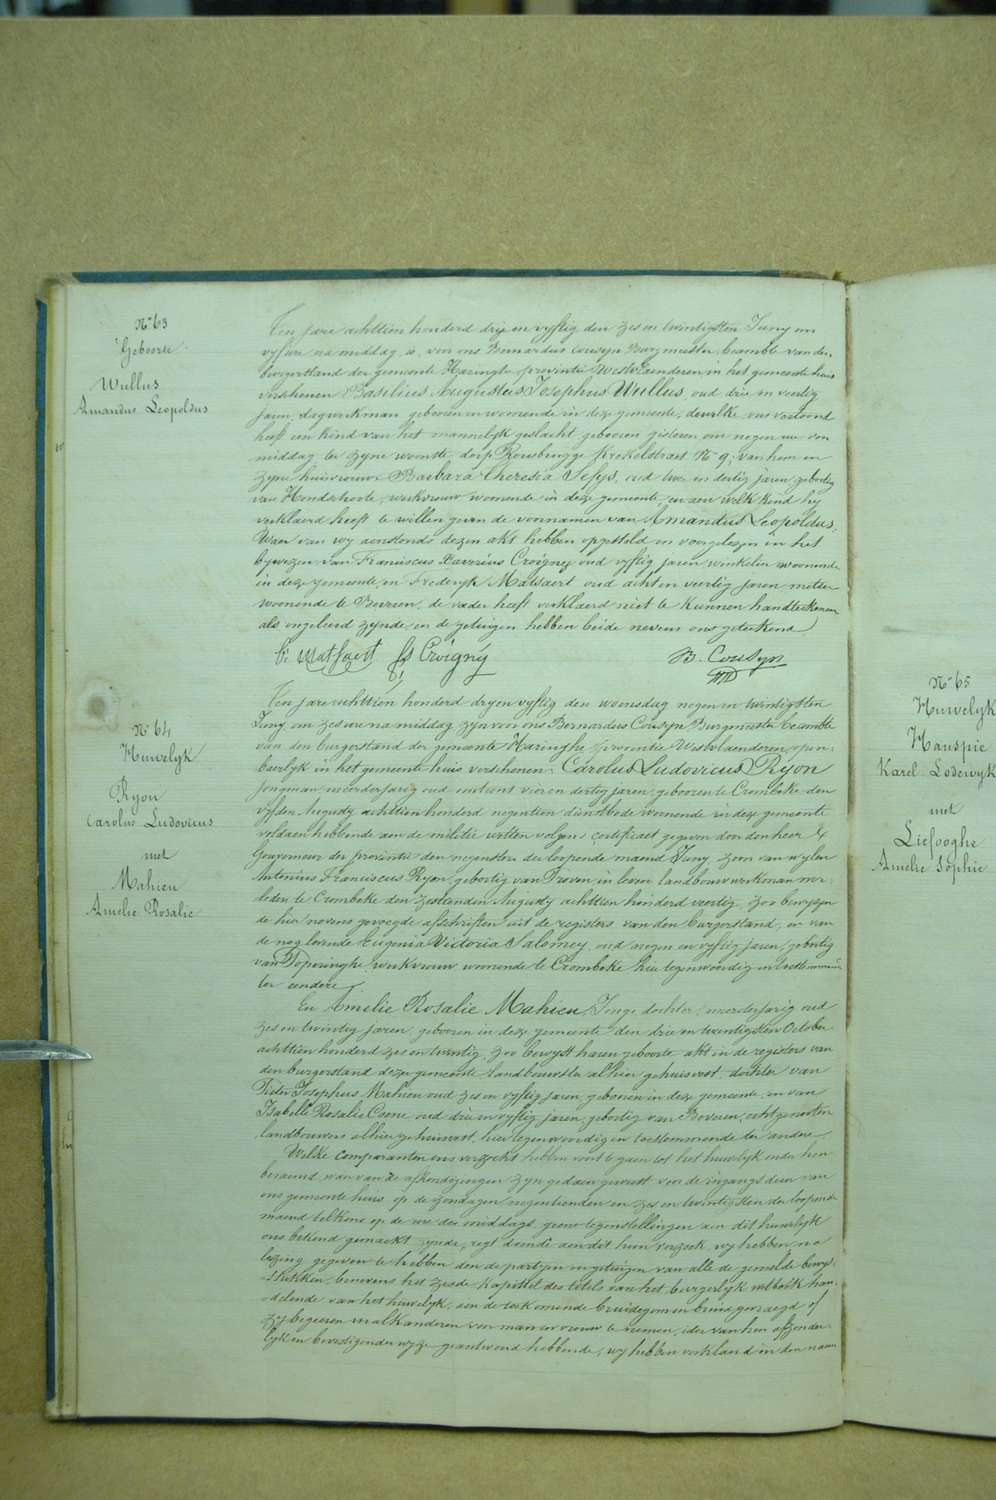 N° 63
Geboorte
Wullus
Amandus Leopoldus
Ten jare achttien honderd drij en vyftig den zes en twintigsten Juny om
vyf ure na middag is, voor ons Bernardus Cousyn Burgmeester, beambte van den
burgerstand der gemeente Haringhe provintie Westvlaenderen in het gemeente huis
verschenen Basilius Augustus Josephus Wullus, oud drie en veertig
jaren, dagwerkman geboren en woonende in deze gemeente, dewelke ons vertoond
heeft een kind van het mannelyk geslacht geboren gisteren om negen ure voor
middag ter zyne woonste, dorp Rousbrugge Prekelstraet N° 9, van hem en
zyne huisvrouwe Barbara Theresia Seys, oud twee en dertig jaren geboortig
van Hondschoote, werkvrouw woonende in deze gemeente, en aen welk kind hy
verklaerd heeft te willen geven de voornamen van Amandus Leopoldus,
Waer van wy aenstonds dezen akt hebben opgesteld en voorgelezen in het
bywezen van Franciscus Xaverius Croigny oud vyftig jaren winkelier woonende
in deze gemeente en Frederyk Matsaert oud acht en veertig jaren metser
woonende te Beveren, de vader heeft verklaerd niet te kunnen handteekenen
als ongeleerd zynde en de getuigen hebben beide nevens ons geteekend
Matsaert Croigny B. Cousyn
N° 64
Huwelyk
Ryon
Carolus Ludovicus
met
Mahieu
Amelie Rosalie
Ten jare achttien honderd dry en vyftig den woensdag negen en twintigsten
Juny om zes ure na middag zyn voor ons Bernardus Cousyn Burgmeester beambte
van den burgerstand der gemeente Haringhe provintie Westvlaenderen, open-
baerlyk in het gemeente huis verschenen: Carolus Ludovicus Ryon
jongman meerderjarig oud ontrent vier en dertig jaren, geboren te Crombeke den
vyfden Augusty achttien honderd negentien dienstbode woonende in deze gemeente
voldaen hebbende aen de militie wetten volgens certificaet gegeven door den heer
Gouverneur der provintie den negensten der loopende maend Juny zoon van wylen
Antonius Franciscus Ryon, geboortig van Proven in leven landbouwwerkman over-
leden te Crombeke den Augusty achttien honderd veertig, zoo bewyzen
de hier nevens gevoegde afschriften uit de registers van den burgerstand, en van
de nog levende Eugenia Victoria Salomez, oud negen en vyftig jaren, geboortig
van Poperinghe, werkvrouw woonende te Crombeke hier tegenwoordig en toestemmende
ter eendere
En Amelie Rosalie Mahieu, Jonge dochter, meerderjarig oud
zes en twintig jaren, geboren in deze gemeente den drie en twintigsten October
achttien honderd zes en twintig, zoo bewyst haren geboorte akt in de registers van
den burgerstand dezer gemeente landbouwster alhier gehuisvest, dochter van
Pieter Josephus Mahieu oud zes en vyftig jaren geboren in deze gemeente en van
Isabelle Rosalie Coene, oud drie en vyftig jaren, geboortig van Beveren, echtgenooten
landbouwers alhier gehuisvest, hier tegenwoordig en toestemmende ter andere
Welke comparanten ons verzocht hebben voort te gaen tot het huwelyk onder hen
beraemd waer van de afkondigingen zyn gedaen geweest voor de ingangs deur van
ons gemeente huis op de zondagen negentienden en zes en twintigsten der loopende
maend telkens op de ure des middags, geene tegenstellingen aen dit huwelyk
ons bekend gemaekt zynde, regt doende aen dit hun verzoek, wy hebben na
lezing gegeven te hebben aen de partyen en getuigen van alle de gemelde bewys-
stukken, benevens het zesde kapittel des titels van het burgerlyk wetboek han-
delende van het huwelyk, aen de toekomende bruidegom en bruid gevraegd of
zy begeeren malkanderen voor man en vrouw te nemen, ider van hun afzonder-
lyk en bevestigender wyze geantwoord hebbende, wy hebben verklaerd in den naem
N° 65
Huwelyk
Hauspie
Karel Lodewyk
met
Liefooghe
Amelie Sophie